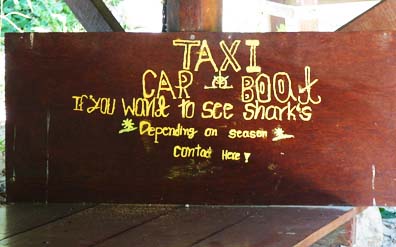 TAXI
CAR BOOt
If you want to see shark's
Depending on season
contact Here!